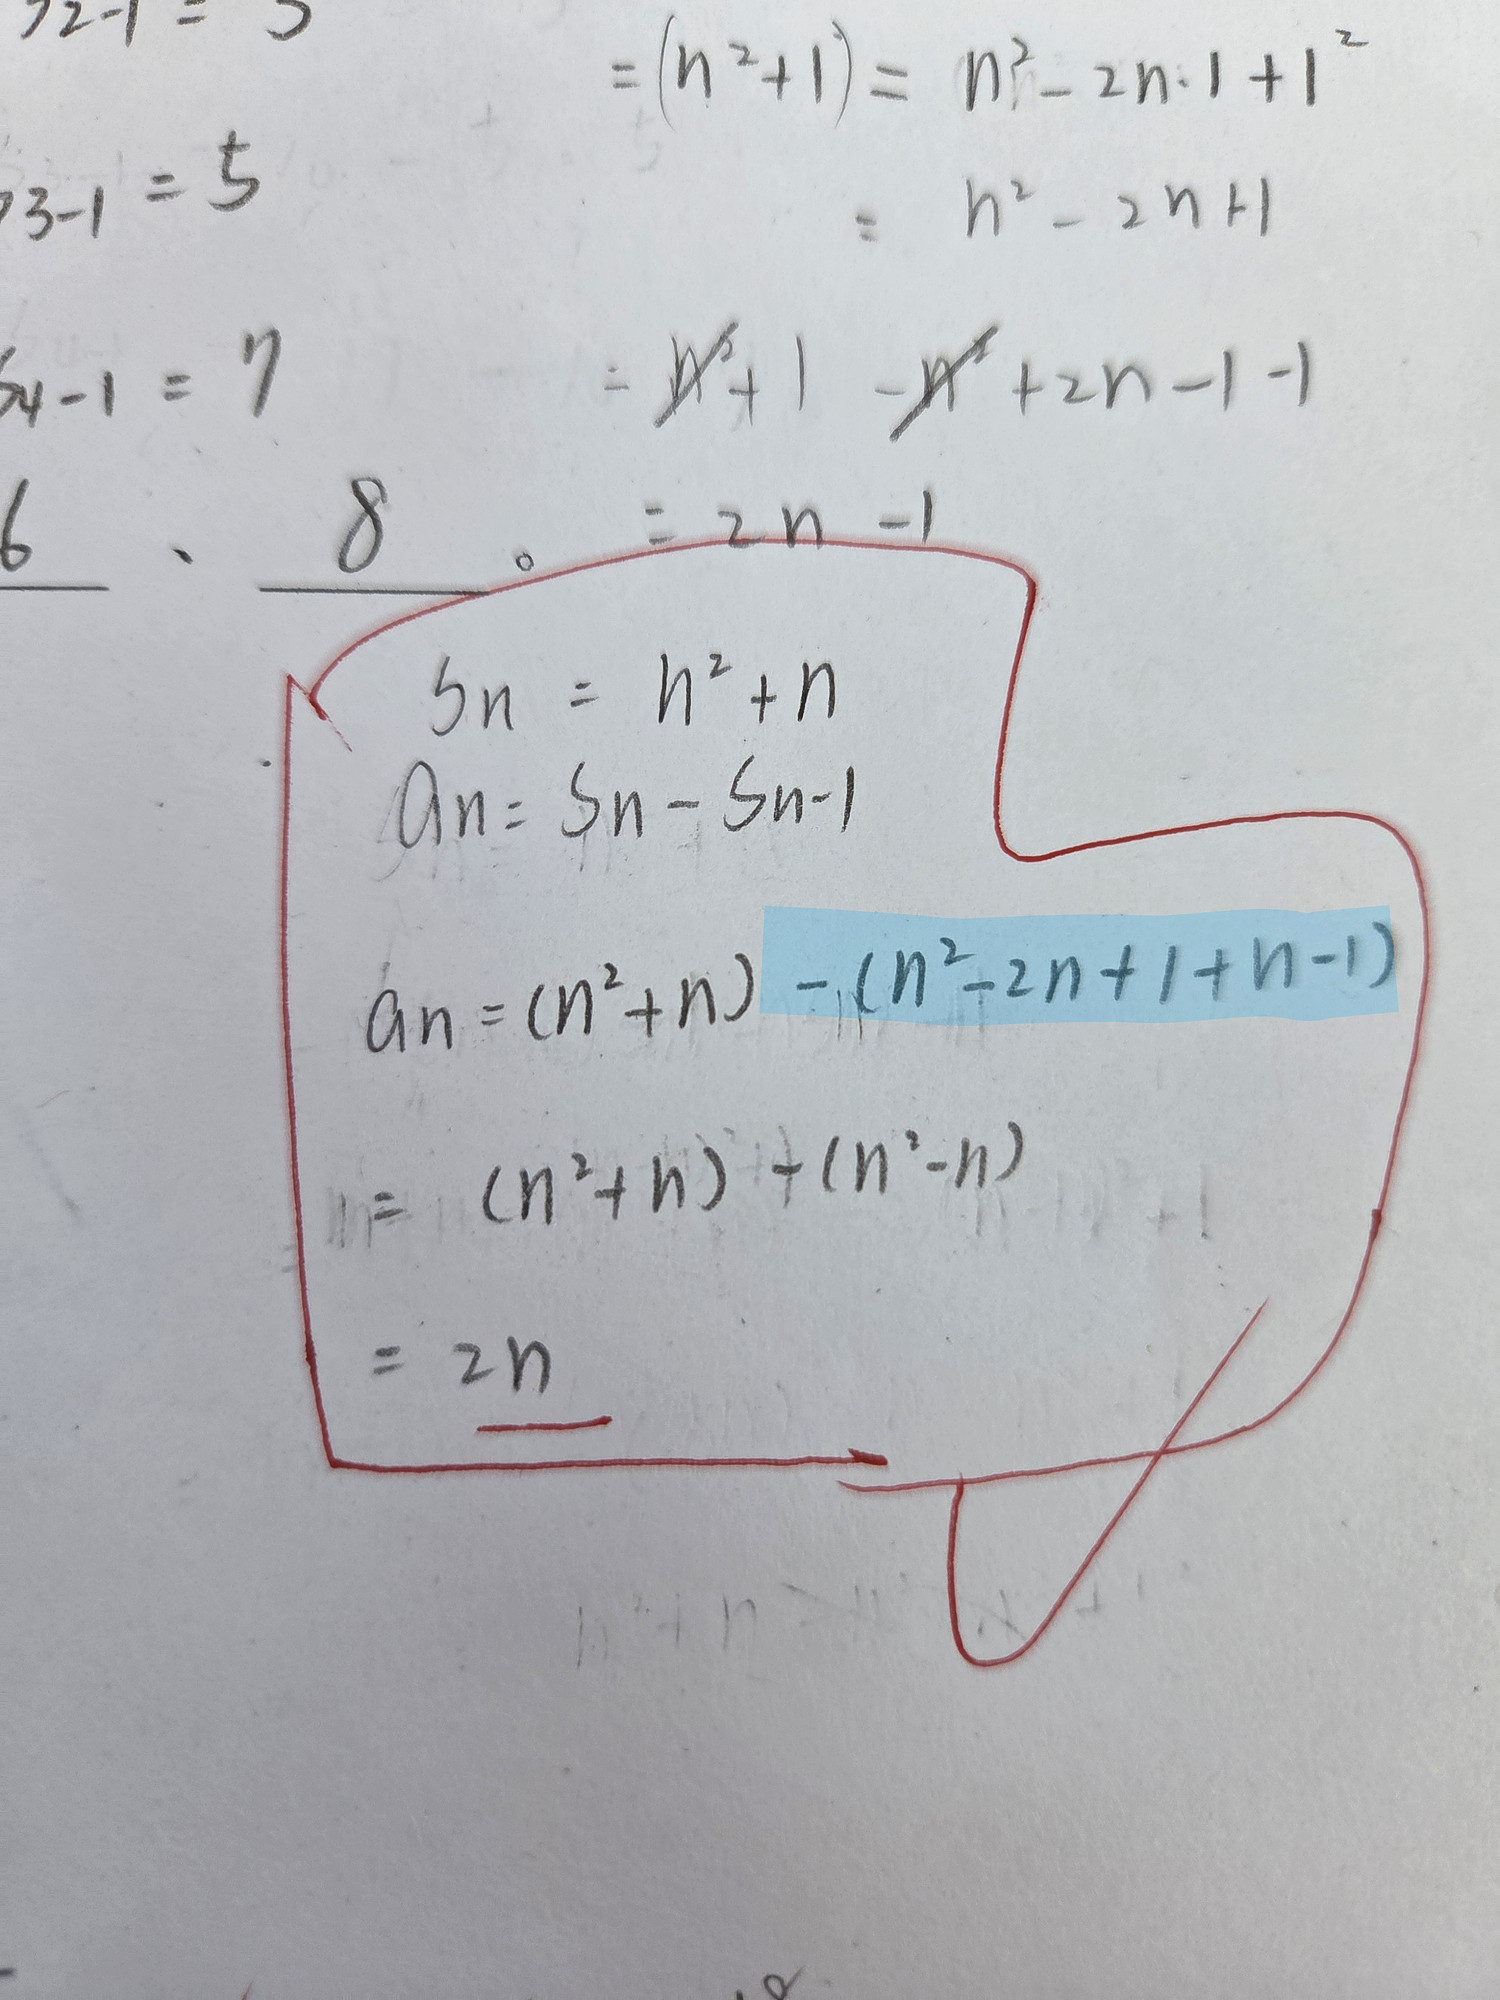 = (n²+1) = n² - 2n·1 + 1²
3-1 = 5
= n² - 2n+1
4-1 = 7
= n²+1 -n² +2n-1-1
6 、 8 。
= 2n -1
Sn = n²+n
an = Sn - Sn-1
an = (n²+n) - (n²-2n+1+n-1)
= (n²+n) - (n²-n)
= 2n